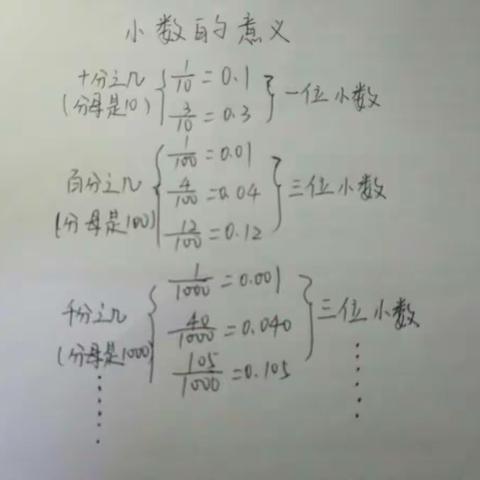 小数的意义
十分之几
(分母是10)
1/10=0.1
3/10=0.3
一位小数
百分之几
(分母是100)
1/100=0.01
4/100=0.04
12/100=0.12
三位小数
千分之几
(分母是1000)
1/1000=0.001
40/1000=0.040
105/1000=0.105
三位小数